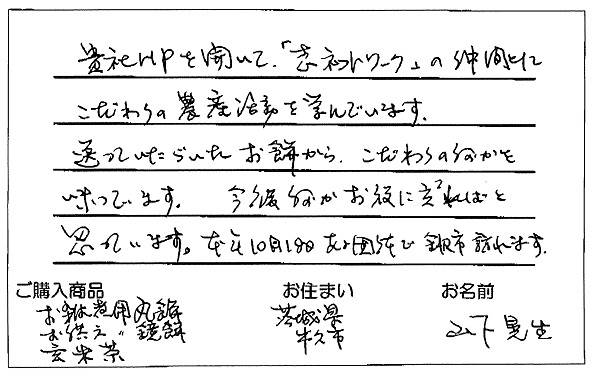 貴社HPを開いて、「志ネットワーク」の仲間と
こだわりの農産活動を学んでいます。
送っていただいたお餅から、こだわりの何かを
味っています。 今後何かお役に立ればと
思っています。本年10月18日
ご購入商品 お住まい お名前
お雑煮用丸餅 茨城県 山下
お供え〃鏡餅 牛久市
玄米茶